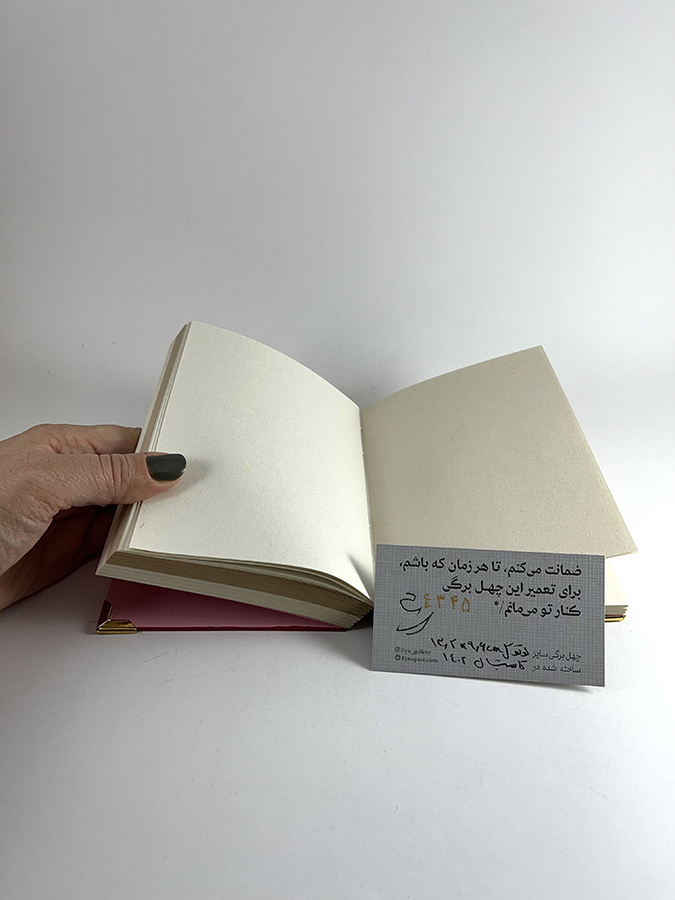 ضمانت می‌کنم، تا هر زمان که باشم،
برای تعمیر این چهل برگی
کنار تو می‌مانم/*
۴۳۴۵
چهل برگی سایز نوتوک ۱۳٫۲×۹٫۶cm
ساخته شده در تابستان ۱۴۰۲
Eyn_gallery
Eynspace.com